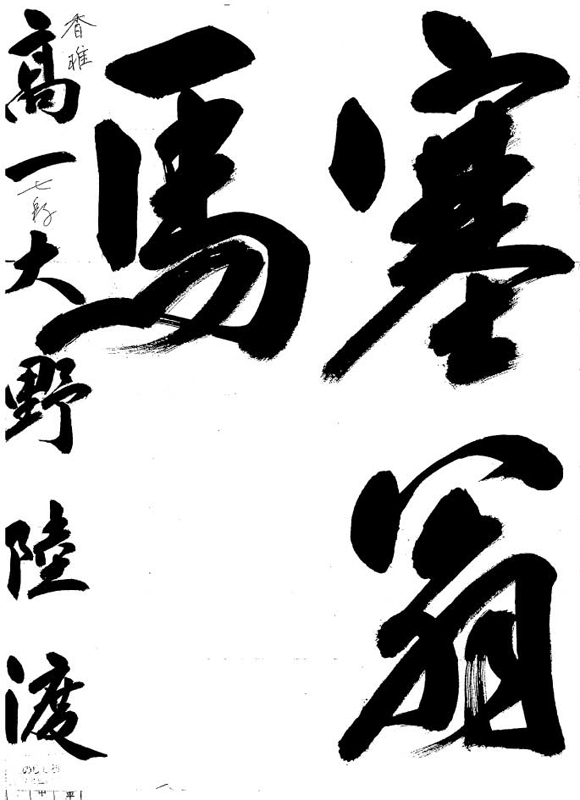 塞翁
馬
高一大野陸渡
香雅
七段